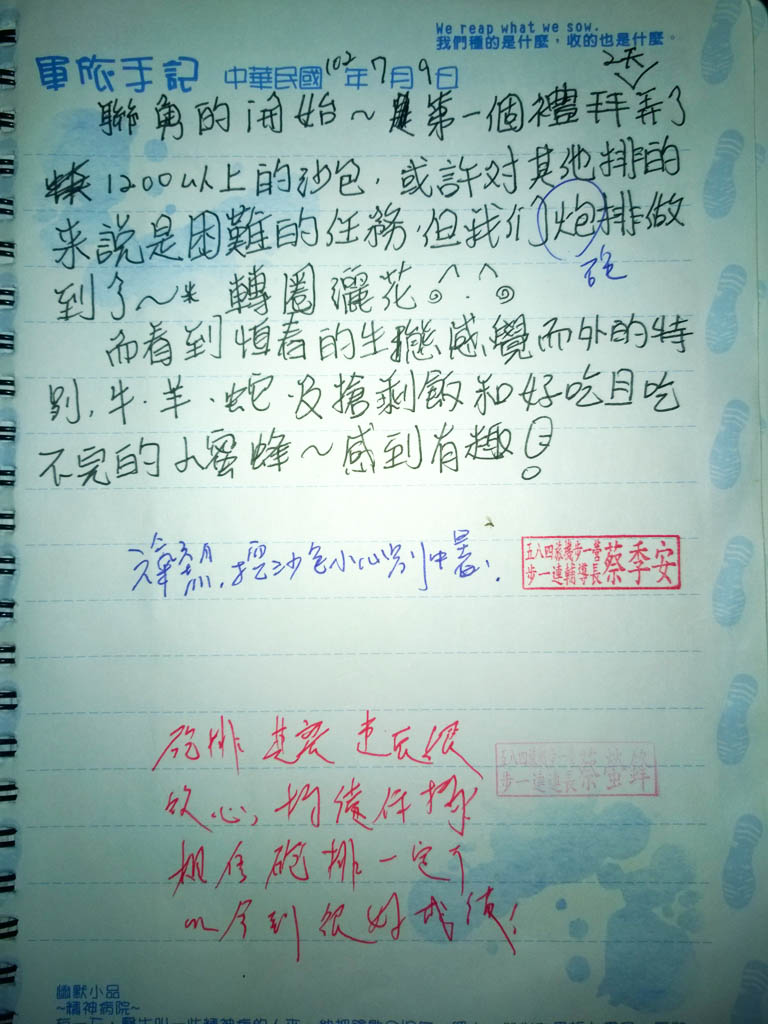 We reap what we sow.
我們種的是什麼，收的也是什麼。
軍旅手記 中華民國102年7月9日
2天
聯角的開始～第一個禮拜弄了
1200以上的沙包，或許对其他排的
来說是困難的任務，但我们炮排做
到了～* 轉圈灑花
砲
而看到恒春的生態感覺而外的特
別，牛、羊、蛇、及搶剩飯和好吃且吃
不完的小蜜蜂～感到有趣！
天氣熱，搖沙包小心別中暑！
五八四旅機步一營
步一連輔導長 蔡季安
砲排 連長很
放心，
相信砲排一定可
以拿到很好成績！
步一連連長
幽默小品
~精神病院~